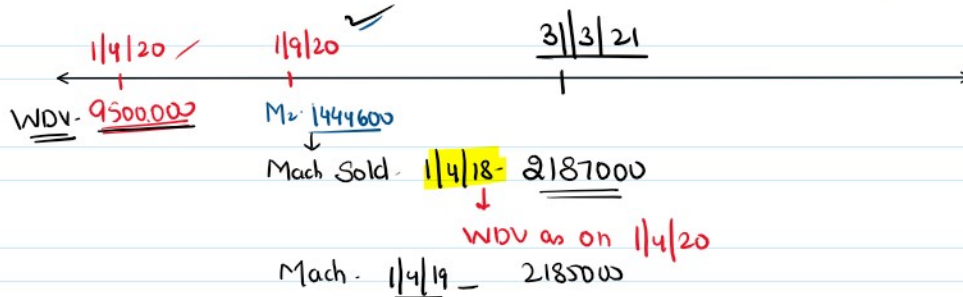 1/4/20 1/9/20 31/3/21
WDV- 9500,000 M2. 1444600
Mach Sold. 1/4/18- 2187000
WDV as on 1/4/20
Mach. 1/4/19 - 2185000